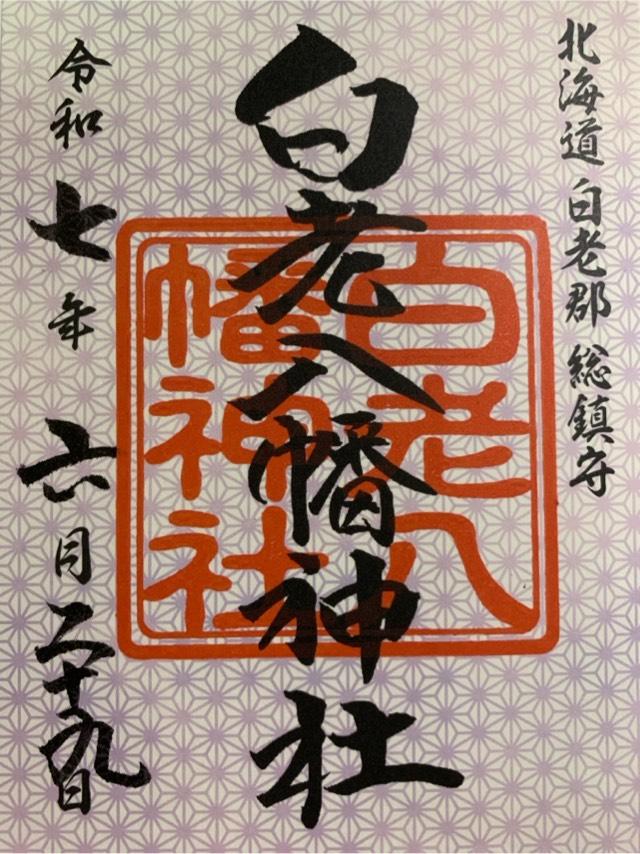 北海道 白老郡 総鎮守
白老八幡神社
白老八
幡神社
令和七年 六月二十九日